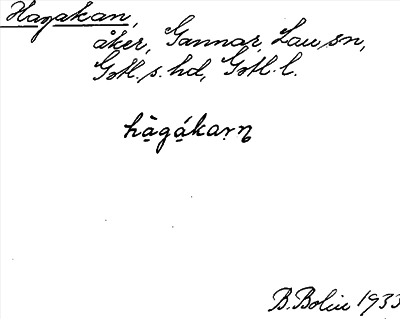 Hagakan,
åker, Gannar, Lau sn,
Gotl. s. hd, Gotl. l.
hà̤gá̤kaṛn
B. Bolin 1933